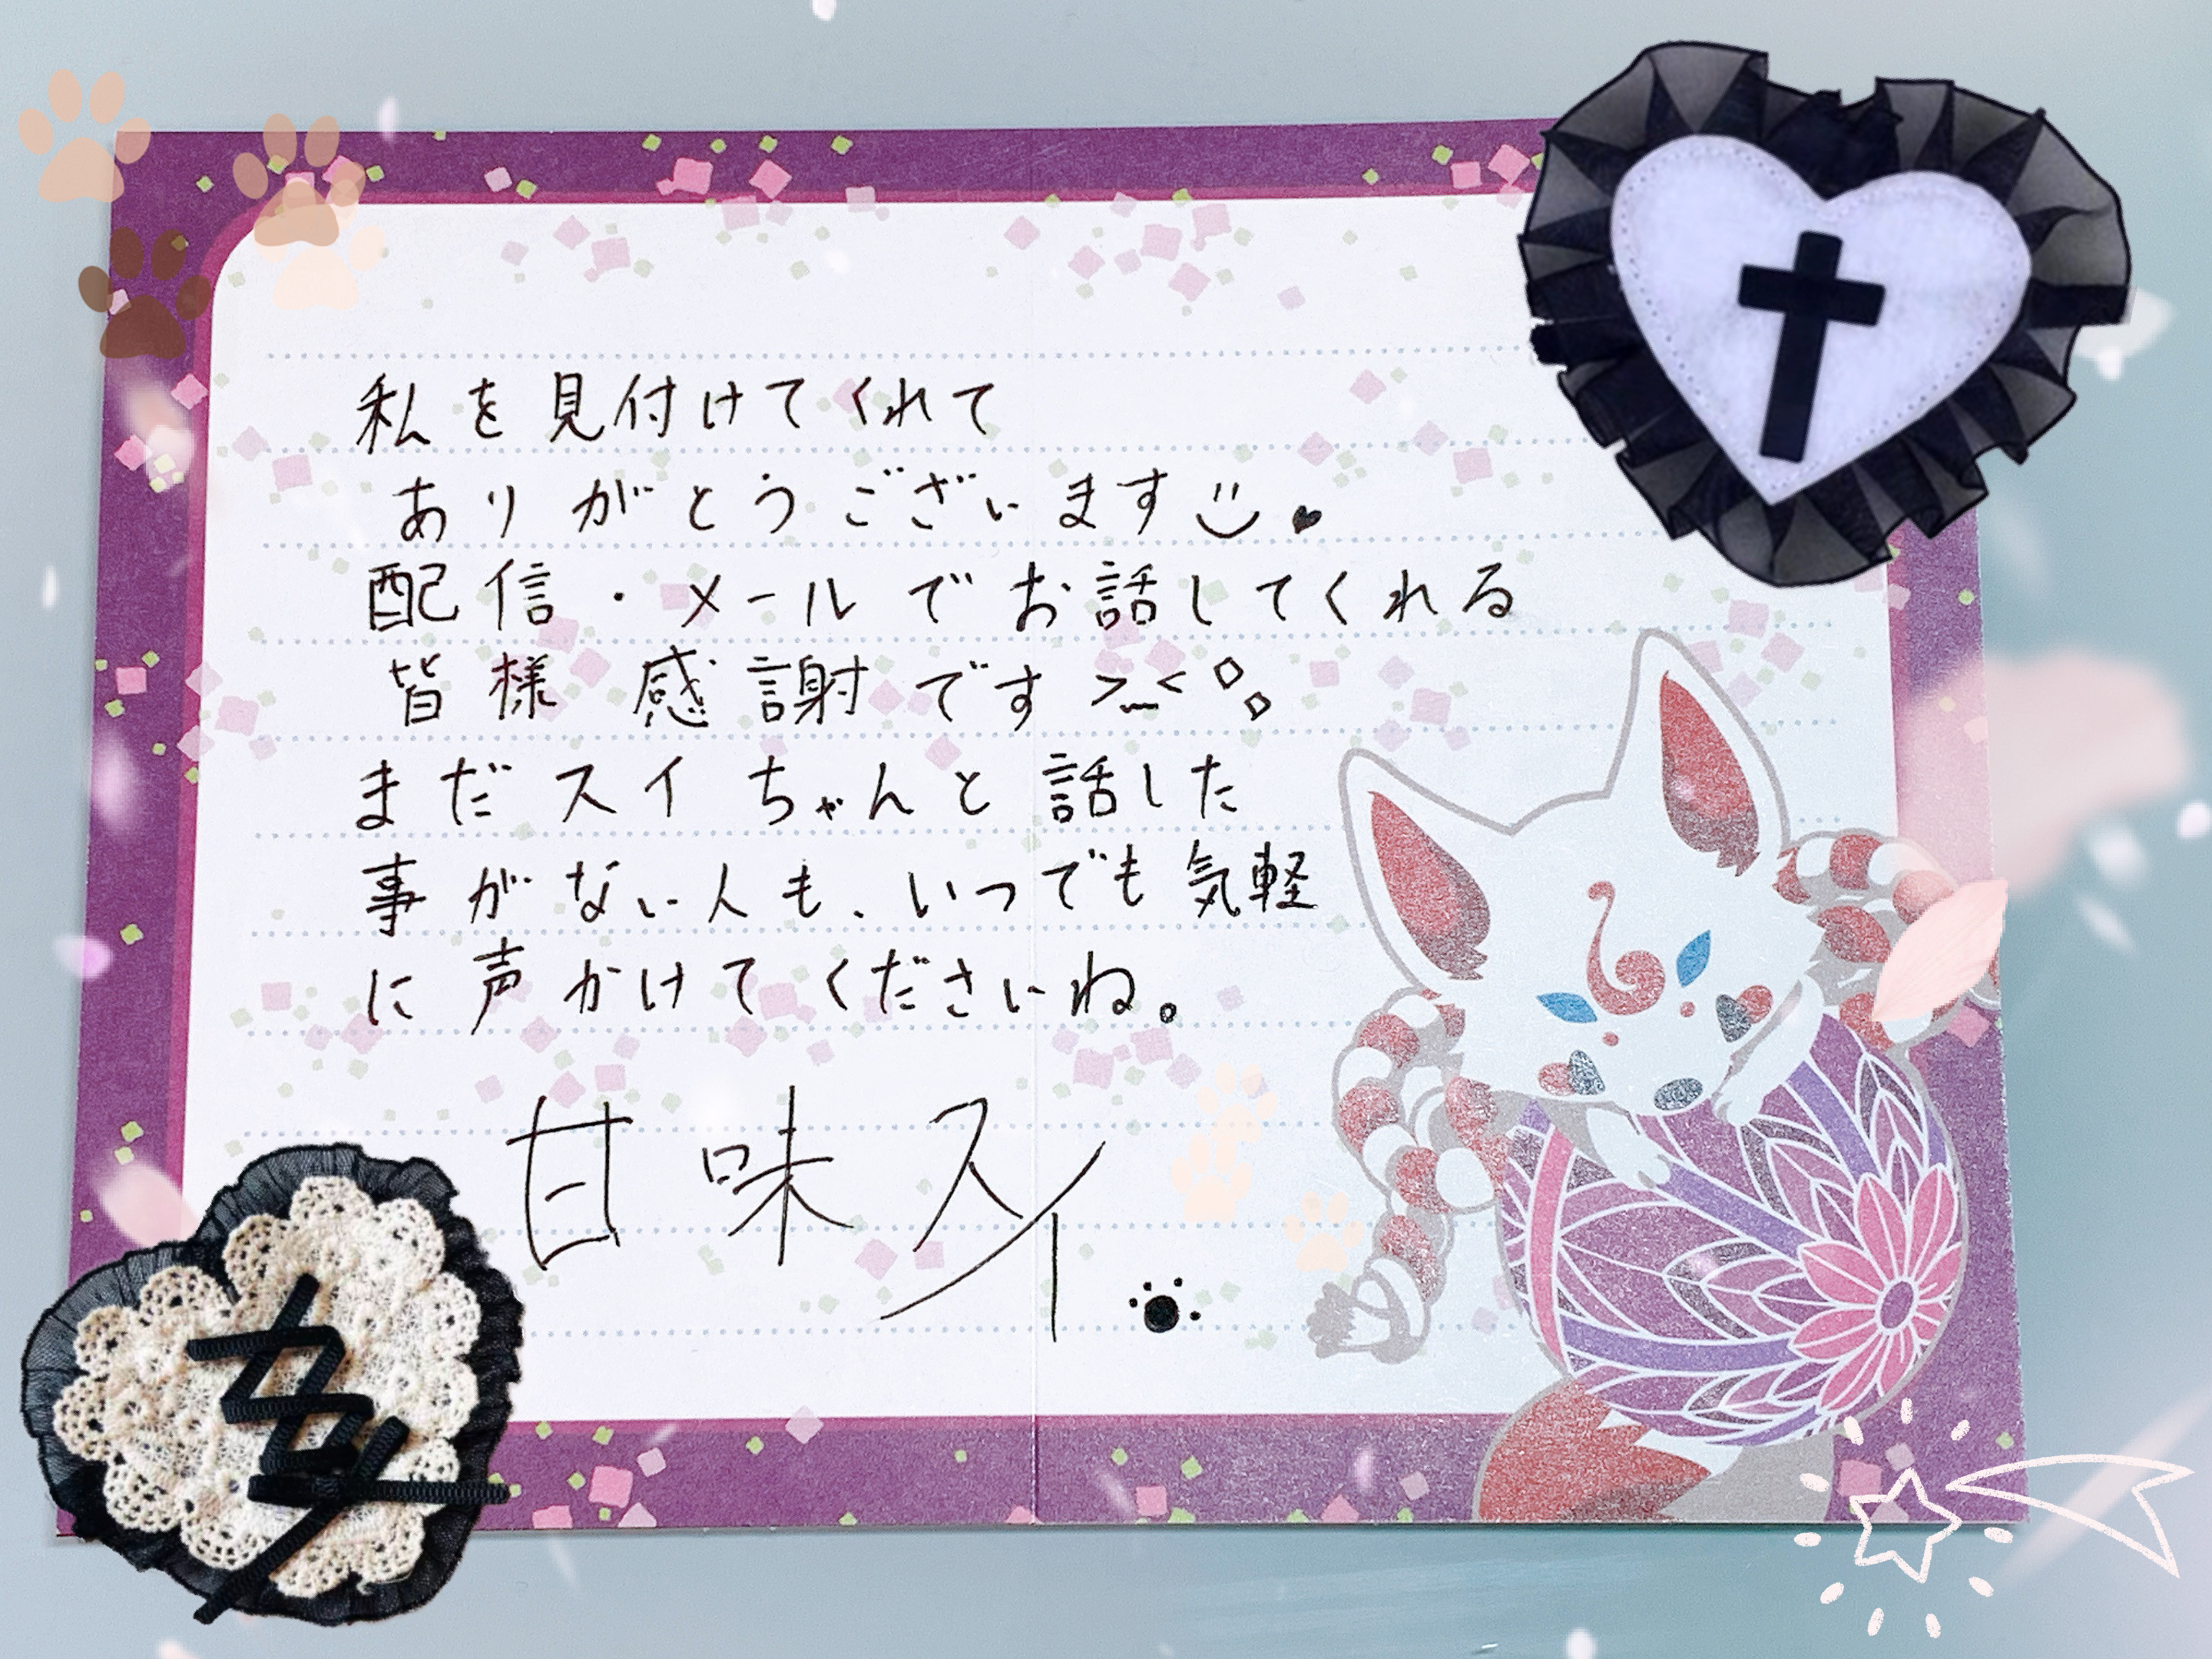 私を見付けてくれて
ありがとうございます
配信・メールでお話してくれる
皆様感謝です >_<
まだスイちゃんと話した
事がない人も、いつでも気軽
に声かけてくださいね。
甘味スイ